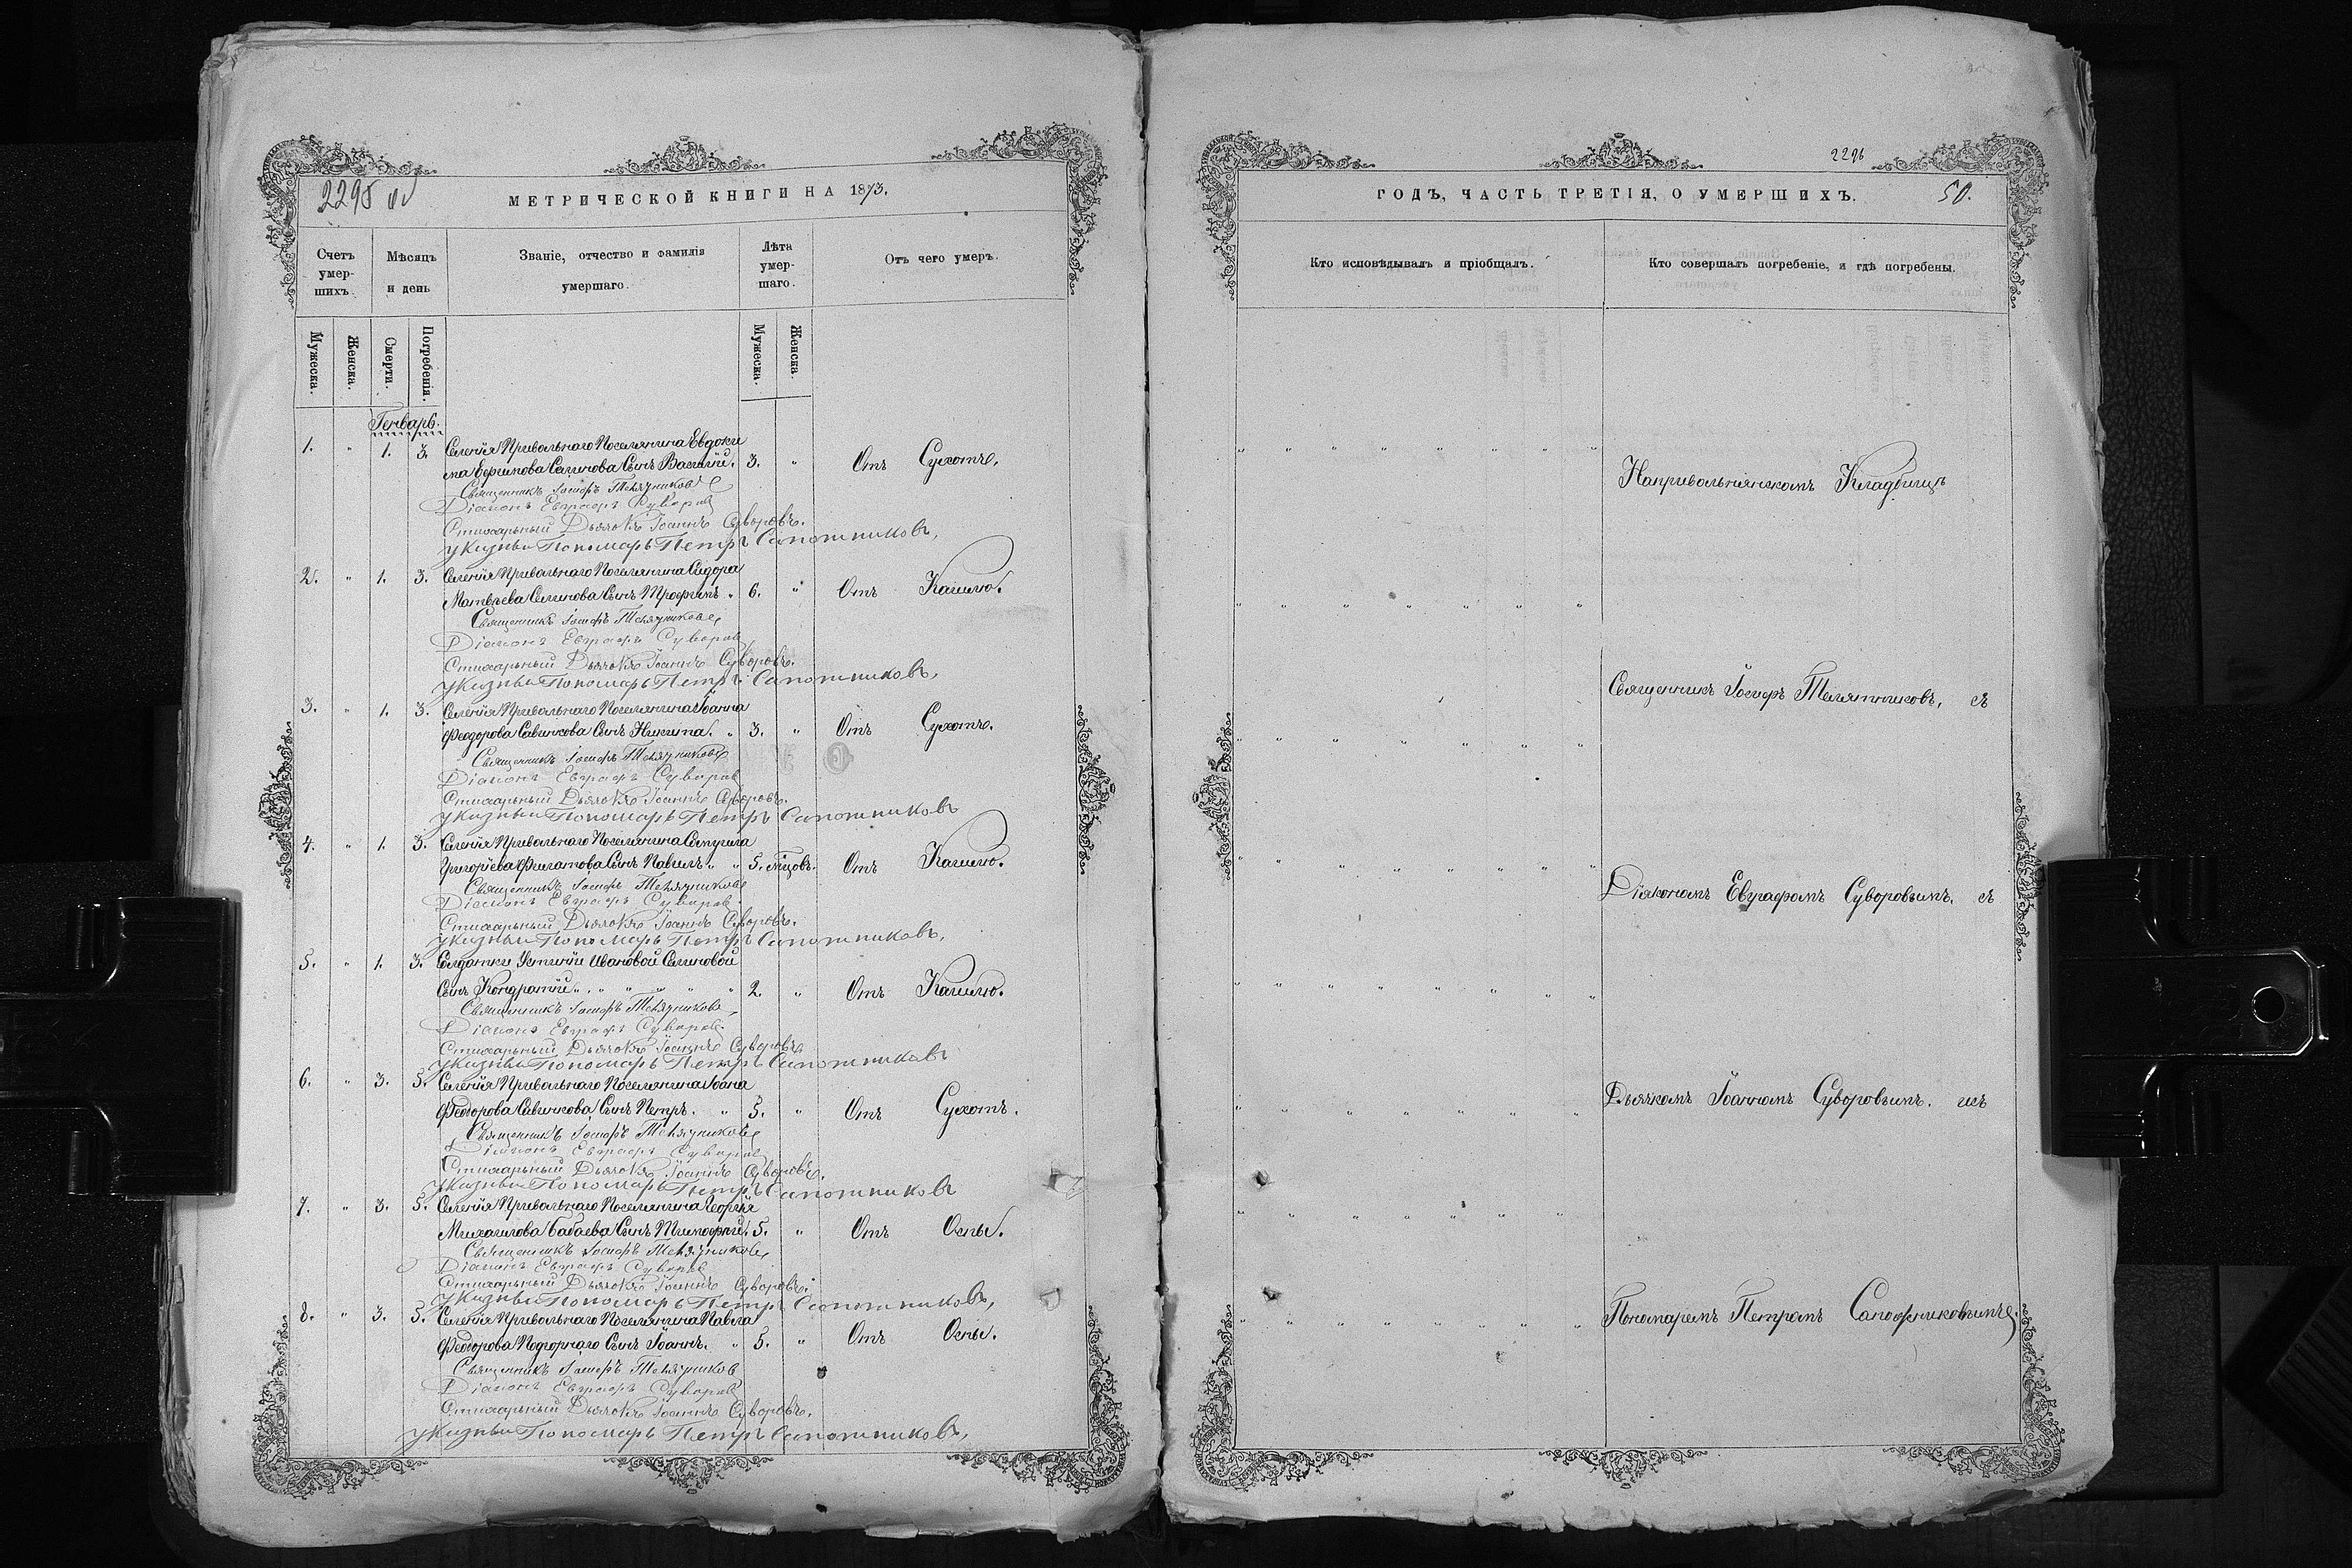 2295 об
МЕТРИЧЕСКОЙ КНИГИ НА 1873.
Счетъ умер-шихъ.
Мѣсяцъ и день
Званіе, отчество и фамилія умершаго.
Лѣта умер-шаго.
Отъ чего умеръ.
Мужеска.
Женска.
Смерти.
Погребенія.
Мужеска.
Женска.
Генварь.
1. " 1. 3. Селенія Привальнаго Поселянина Евдоки
ма Ефимова Селинова Сынъ Василій. 3. " Отъ Сухотъ.
Священникъ Іосифъ Телятниковъ
Діаконъ Евграфъ Суворов
Стихарный Дьячокъ Іоаннъ Суворовъ.
Указный Пономарь Петръ Сапожниковъ,
2. " 1. 3. Селенія Привальнаго Поселянина Сидора
Матвѣева Селинова Сынъ Трофимъ " 6. " Отъ Кашлю.
Священникъ Іосифъ Телятниковъ
Діаконъ Евграфъ Суворов
Стихарный Дьячокъ Іоаннъ Суворовъ.
Указный Пономарь Петръ Сапожниковъ,
3. " 1. 3. Селенія Привальнаго Поселянина Іоанна
Феодорова Савинкова Сынъ Никита. " 3. " Отъ Сухотъ.
Священникъ Іосифъ Телятниковъ
Діаконъ Евграфъ Суворов
Стихарный Дьячокъ Іоаннъ Суворовъ.
Указный Пономарь Петръ Сапожниковъ
4. " 1. 3. Селенія Привальнаго Поселянина Самуила
Григоріева Филатова Сынъ Павелъ. " 5. мѣсцовъ. Отъ Кашлю.
Священникъ Іосифъ Телятниковъ
Діаконъ Евграфъ Суворов
Стихарный Дьячокъ Іоаннъ Суворовъ.
Указный Пономарь Петръ Сапожниковъ,
5. " 1. 3. Солдатки Устиніи Ивановой Селиновой
Сынъ Кондратій " " " " " " 2. " Отъ Кашлю.
Священникъ Іосифъ Телятниковъ
Діаконъ Евграфъ Суворов
Стихарный Дьячокъ Іоаннъ Суворовъ
Указный Пономарь Петръ Сапожниковъ
6. " 3. 5. Селенія Привальнаго Поселянина Іоана
Феодорова Савинкова Сынъ Петръ. " 5. " Отъ Сухотъ.
Священникъ Іосифъ Телятниковъ
Діаконъ Евграфъ Суворов
Стихарный Дьячокъ Іоаннъ Суворовъ.
Указный Пономарь Петръ Сапожниковъ
7. " 3. 5. Селенія Привальнаго Поселянина Георгія
Михаилова Бабаева Сынъ Тимофѣй. 5. " Отъ Оспы.
Священникъ Іосифъ Телятниковъ
Діаконъ Евграфъ Суворов
Стихарный Дьячокъ Іоаннъ Суворовъ.
Указный Пономарь Петръ Сапожниковъ,
8. " 3. 5. Селенія Привальнаго Поселянина Павла
Феодорова Подгорнаго Сынъ Іоаннъ. " 5. " Отъ Оспы.
Священникъ Іосифъ Телятников
Діаконъ Евграфъ Суворов
Стихарный Дьячокъ Іоаннъ Суворовъ.
Указный Пономарь Петръ Сапожниковъ,
2296
ГОДЪ, ЧАСТЬ ТРЕТІЯ, О УМЕРШИХЪ.
50.
Кто исповѣдывалъ и пріобщалъ.
Кто совершалъ погребеніе, и гдѣ погребены.
На привальнянскомъ Кладбищѣ
Священникъ Іосифъ Телятниковъ, съ
Діякономъ Евграфомъ Суворовымъ, съ
Дьячкомъ Іоанномъ Суворовымъ. исъ
Пономаремъ Петромъ Сапожниковымъ.